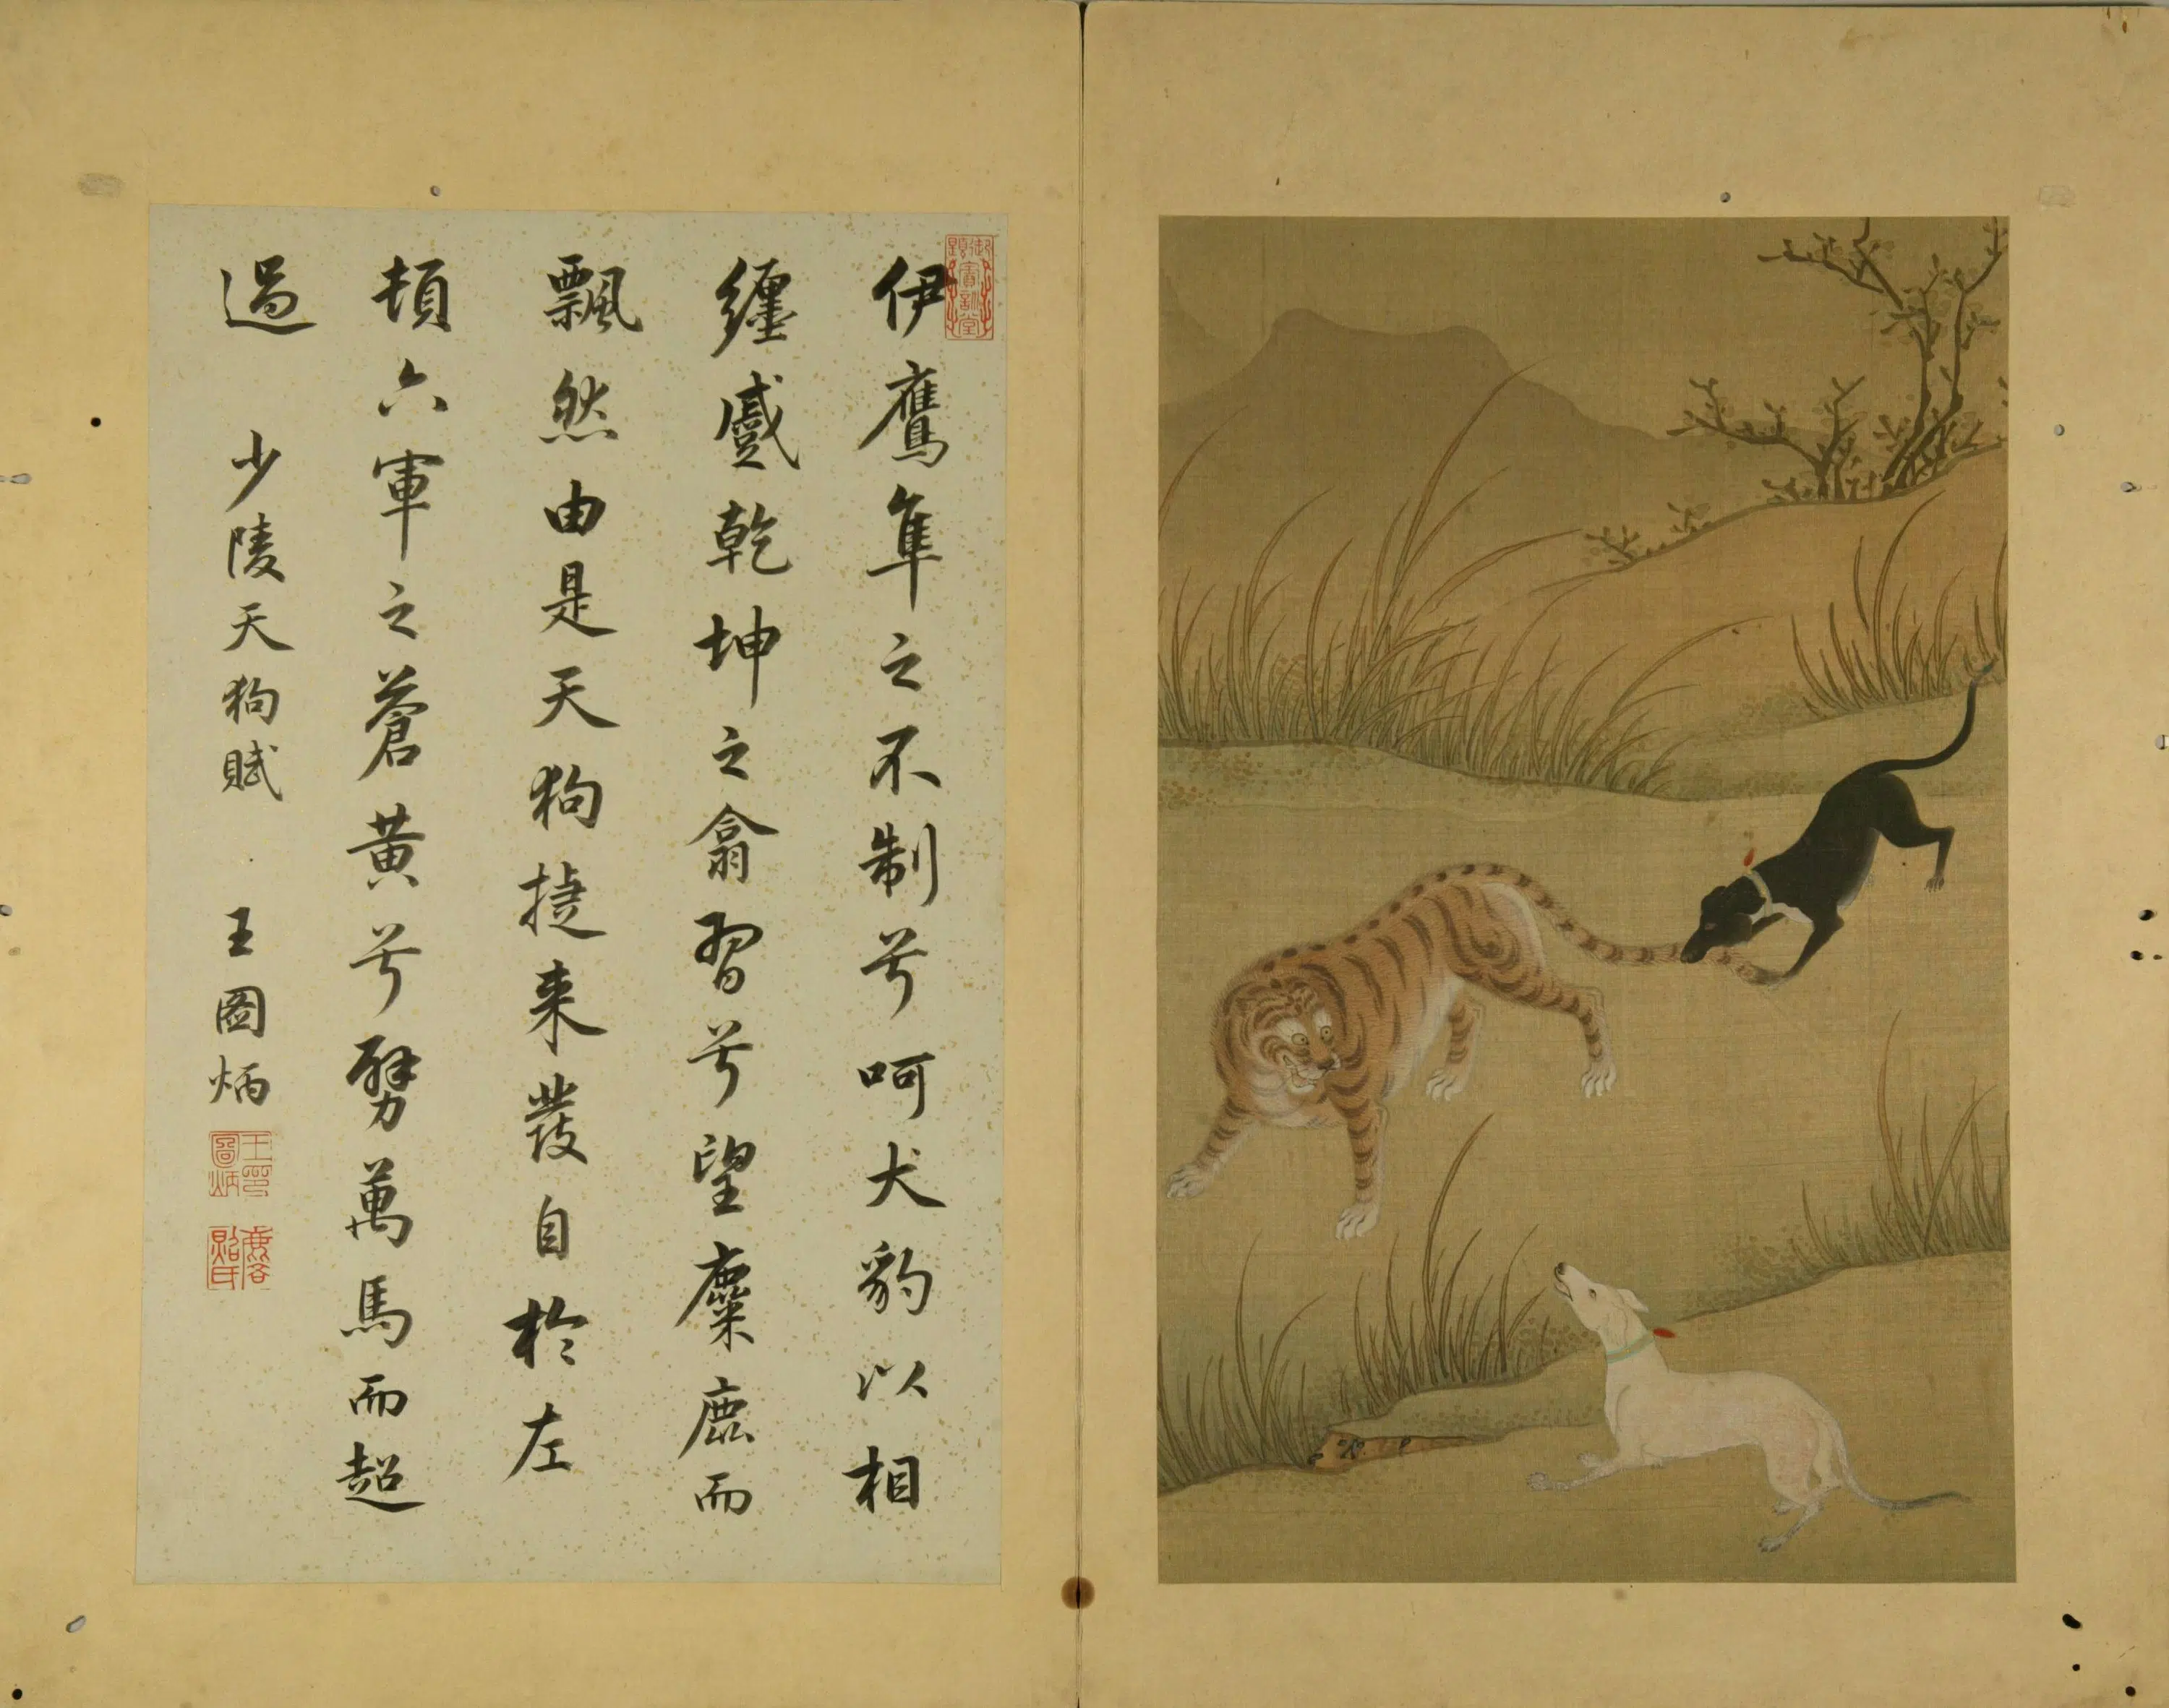 伊鷹隼之不制兮呵犬豹以相
纏蹙乾坤之翕習兮望麋鹿而
飄然由是天狗捷来發自於左
頓六軍之蒼黃兮劈萬馬而超
過 少陵天狗賦 王圖炳
御題寶訓堂
王圖炳印